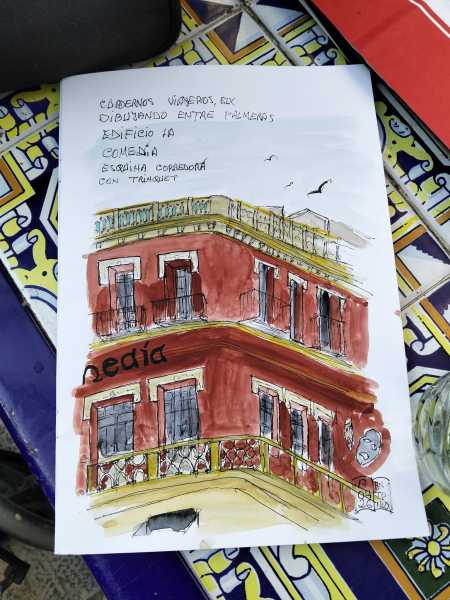 CUADERNOS VIAJEROS, ELX
DIBUJANDO ENTRE PALMERAS
EDIFICIO LA
COMEDIA
ESQUINA CORREDORA
CON TRINQUET
media